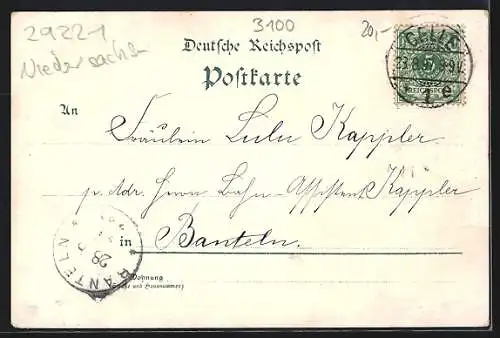 29221
Niedersachsen
3100
20,-
Deutsche Reichspost
Postkarte
CELLE
23.8.97. 8-9V.
1 e
5
REICHSPOST
An
Fräulein Lulu Kappler
p. Adr. Herrn Bahn-Assistent Kappler
in Banteln.
BANTELN
Wohnung
(Straße und Hausnummer)